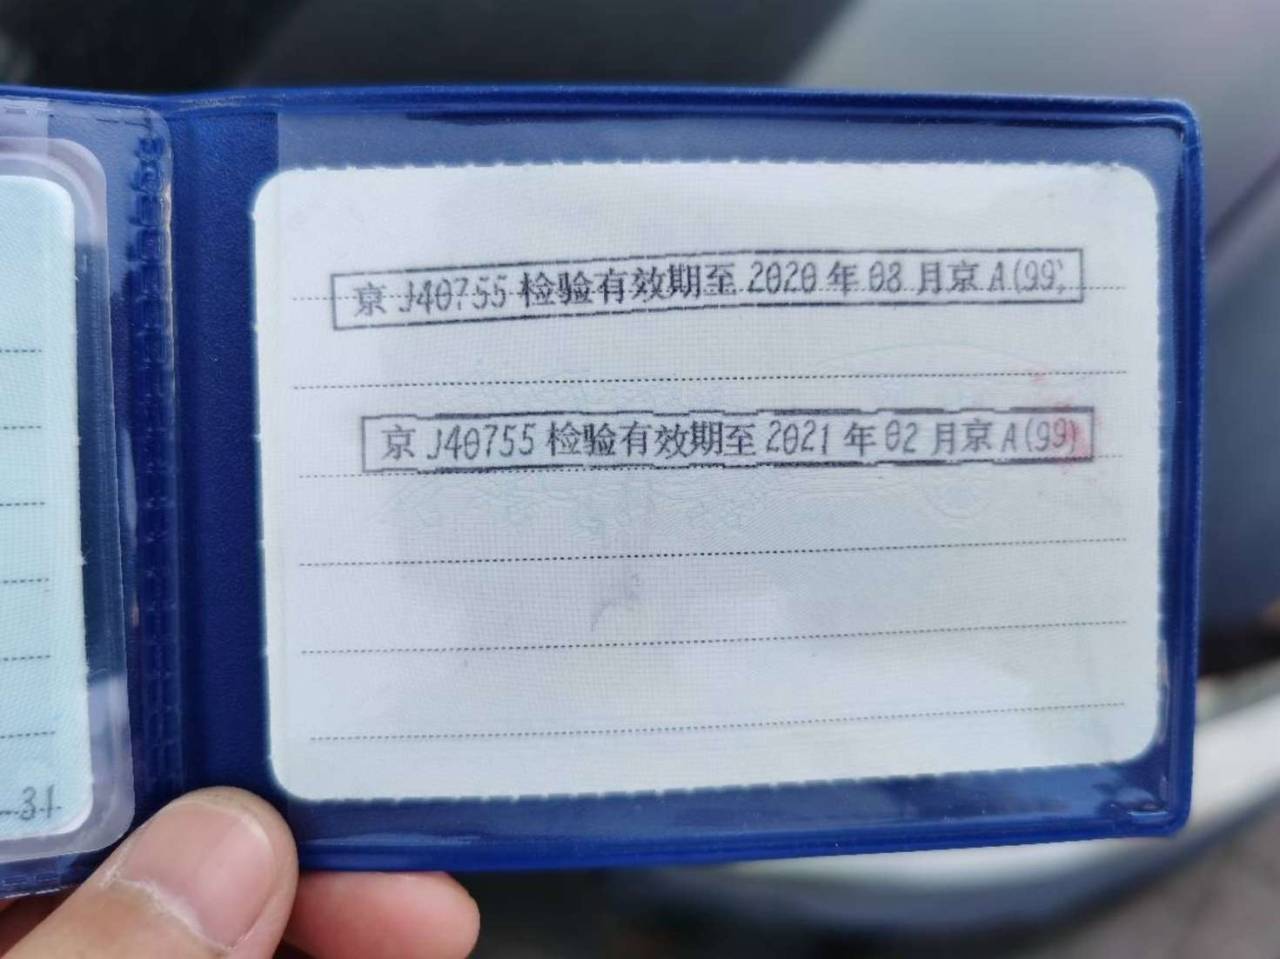 京 J40755 检验有效期至 2020 年 08 月京 A(99)
京 J40755 检验有效期至 2021 年 02 月京 A(99)
-31